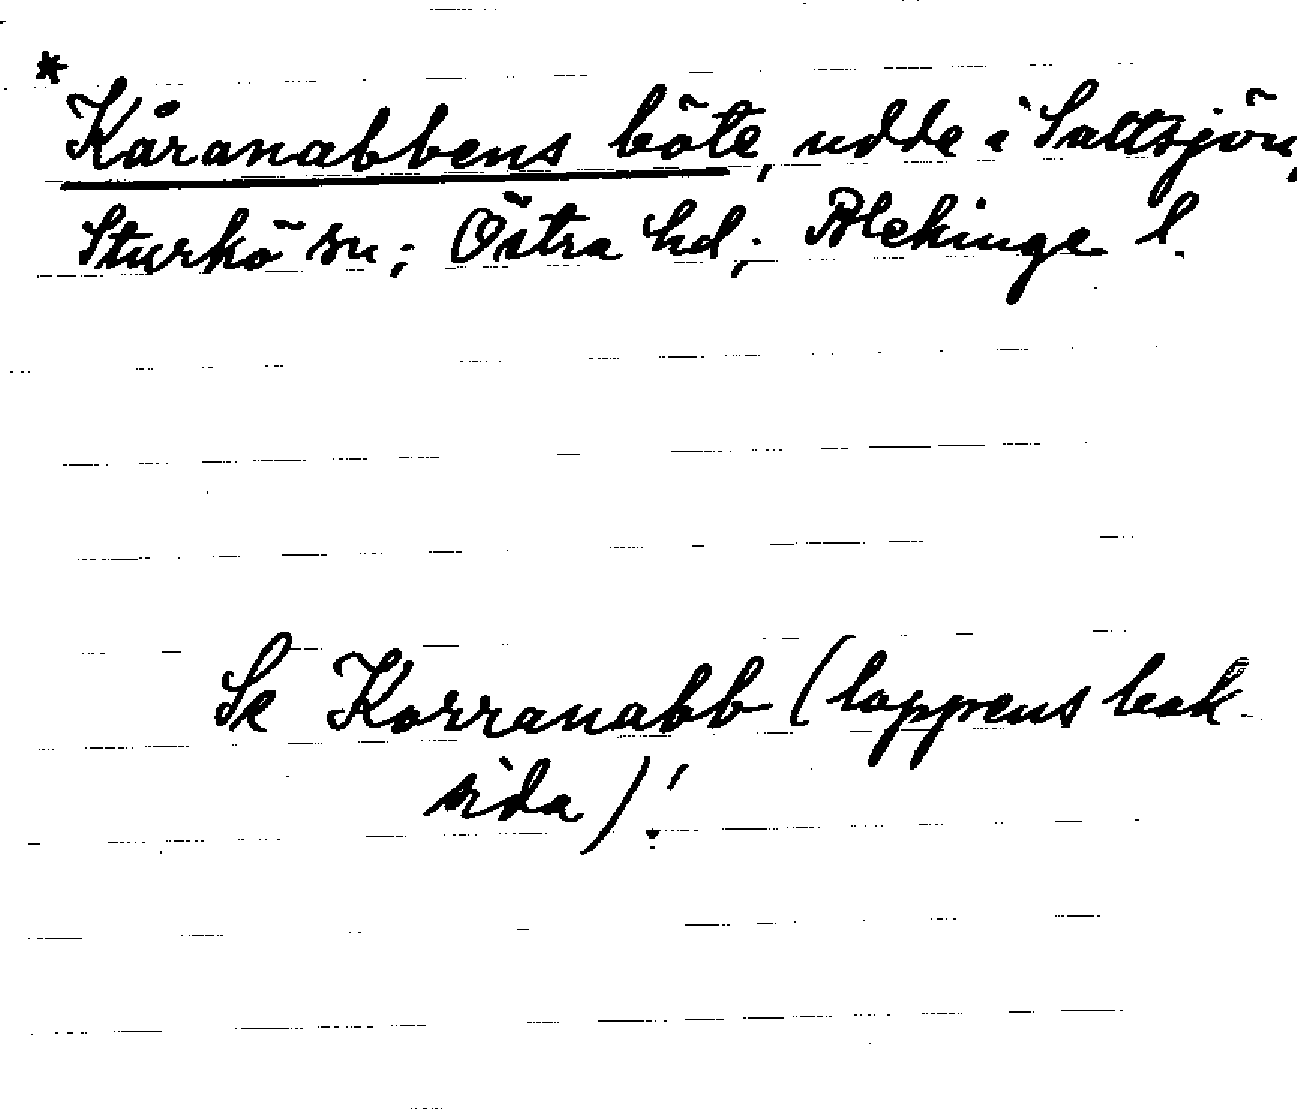 * Kåranabbens böte, udde i Saltsjön,
Sturkö sn; Östra hd; Blekinge l.
Se Korranabb (lappens bak
sida)!